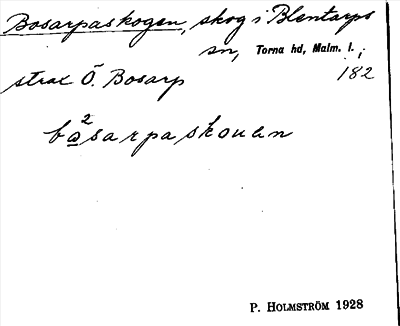 Bosarpaskogen, skog i Blentarps
sn, Torna hd, Malm. l. ;
182
strax Ö. Bosarp
bo²sarpaskouan
P. HOLMSTRÖM 1928